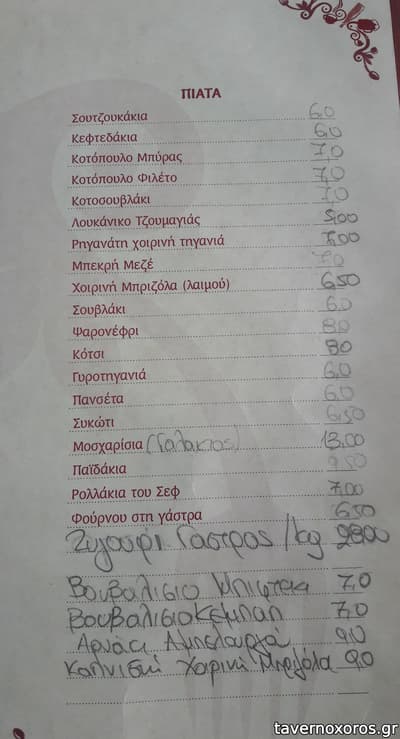 ΠΙΑΤΑ
Σουτζουκάκια 6,0
Κεφτεδάκια 6,0
Κοτόπουλο Μπύρας 7,0
Κοτόπουλο Φιλέτο 7,0
Κοτοσουβλάκι 7,0
Λουκάνικο Τζουμαγιάς 5,00
Ρηγανάτη χοιρινή τηγανιά 7,00
Μπεκρή Μεζέ 7,0
Χοιρινή Μπριζόλα (λαιμού) 6,50
Σουβλάκι 6,0
Ψαρονέφρι 8,0
Κότσι 9,0
Γυροτηγανιά 6,0
Πανσέτα 6,0
Συκώτι 6,50
Μοσχαρίσια (Γαλακτος) 13,00
Παϊδάκια 9,50
Ρολλάκια του Σεφ 7,00
Φούρνου στη γάστρα 6,50
Ζυγουρι Γαστρος /kg
Βουβαλισιο Μπιφτεκι 7,0
Βουβαλισιο Κεμπαπ 7,0
Αρνακι Αμπελουργα 9,0
Καπνιστη Χοιρινη Μπριζολα 9,0
tavernoxoros.gr